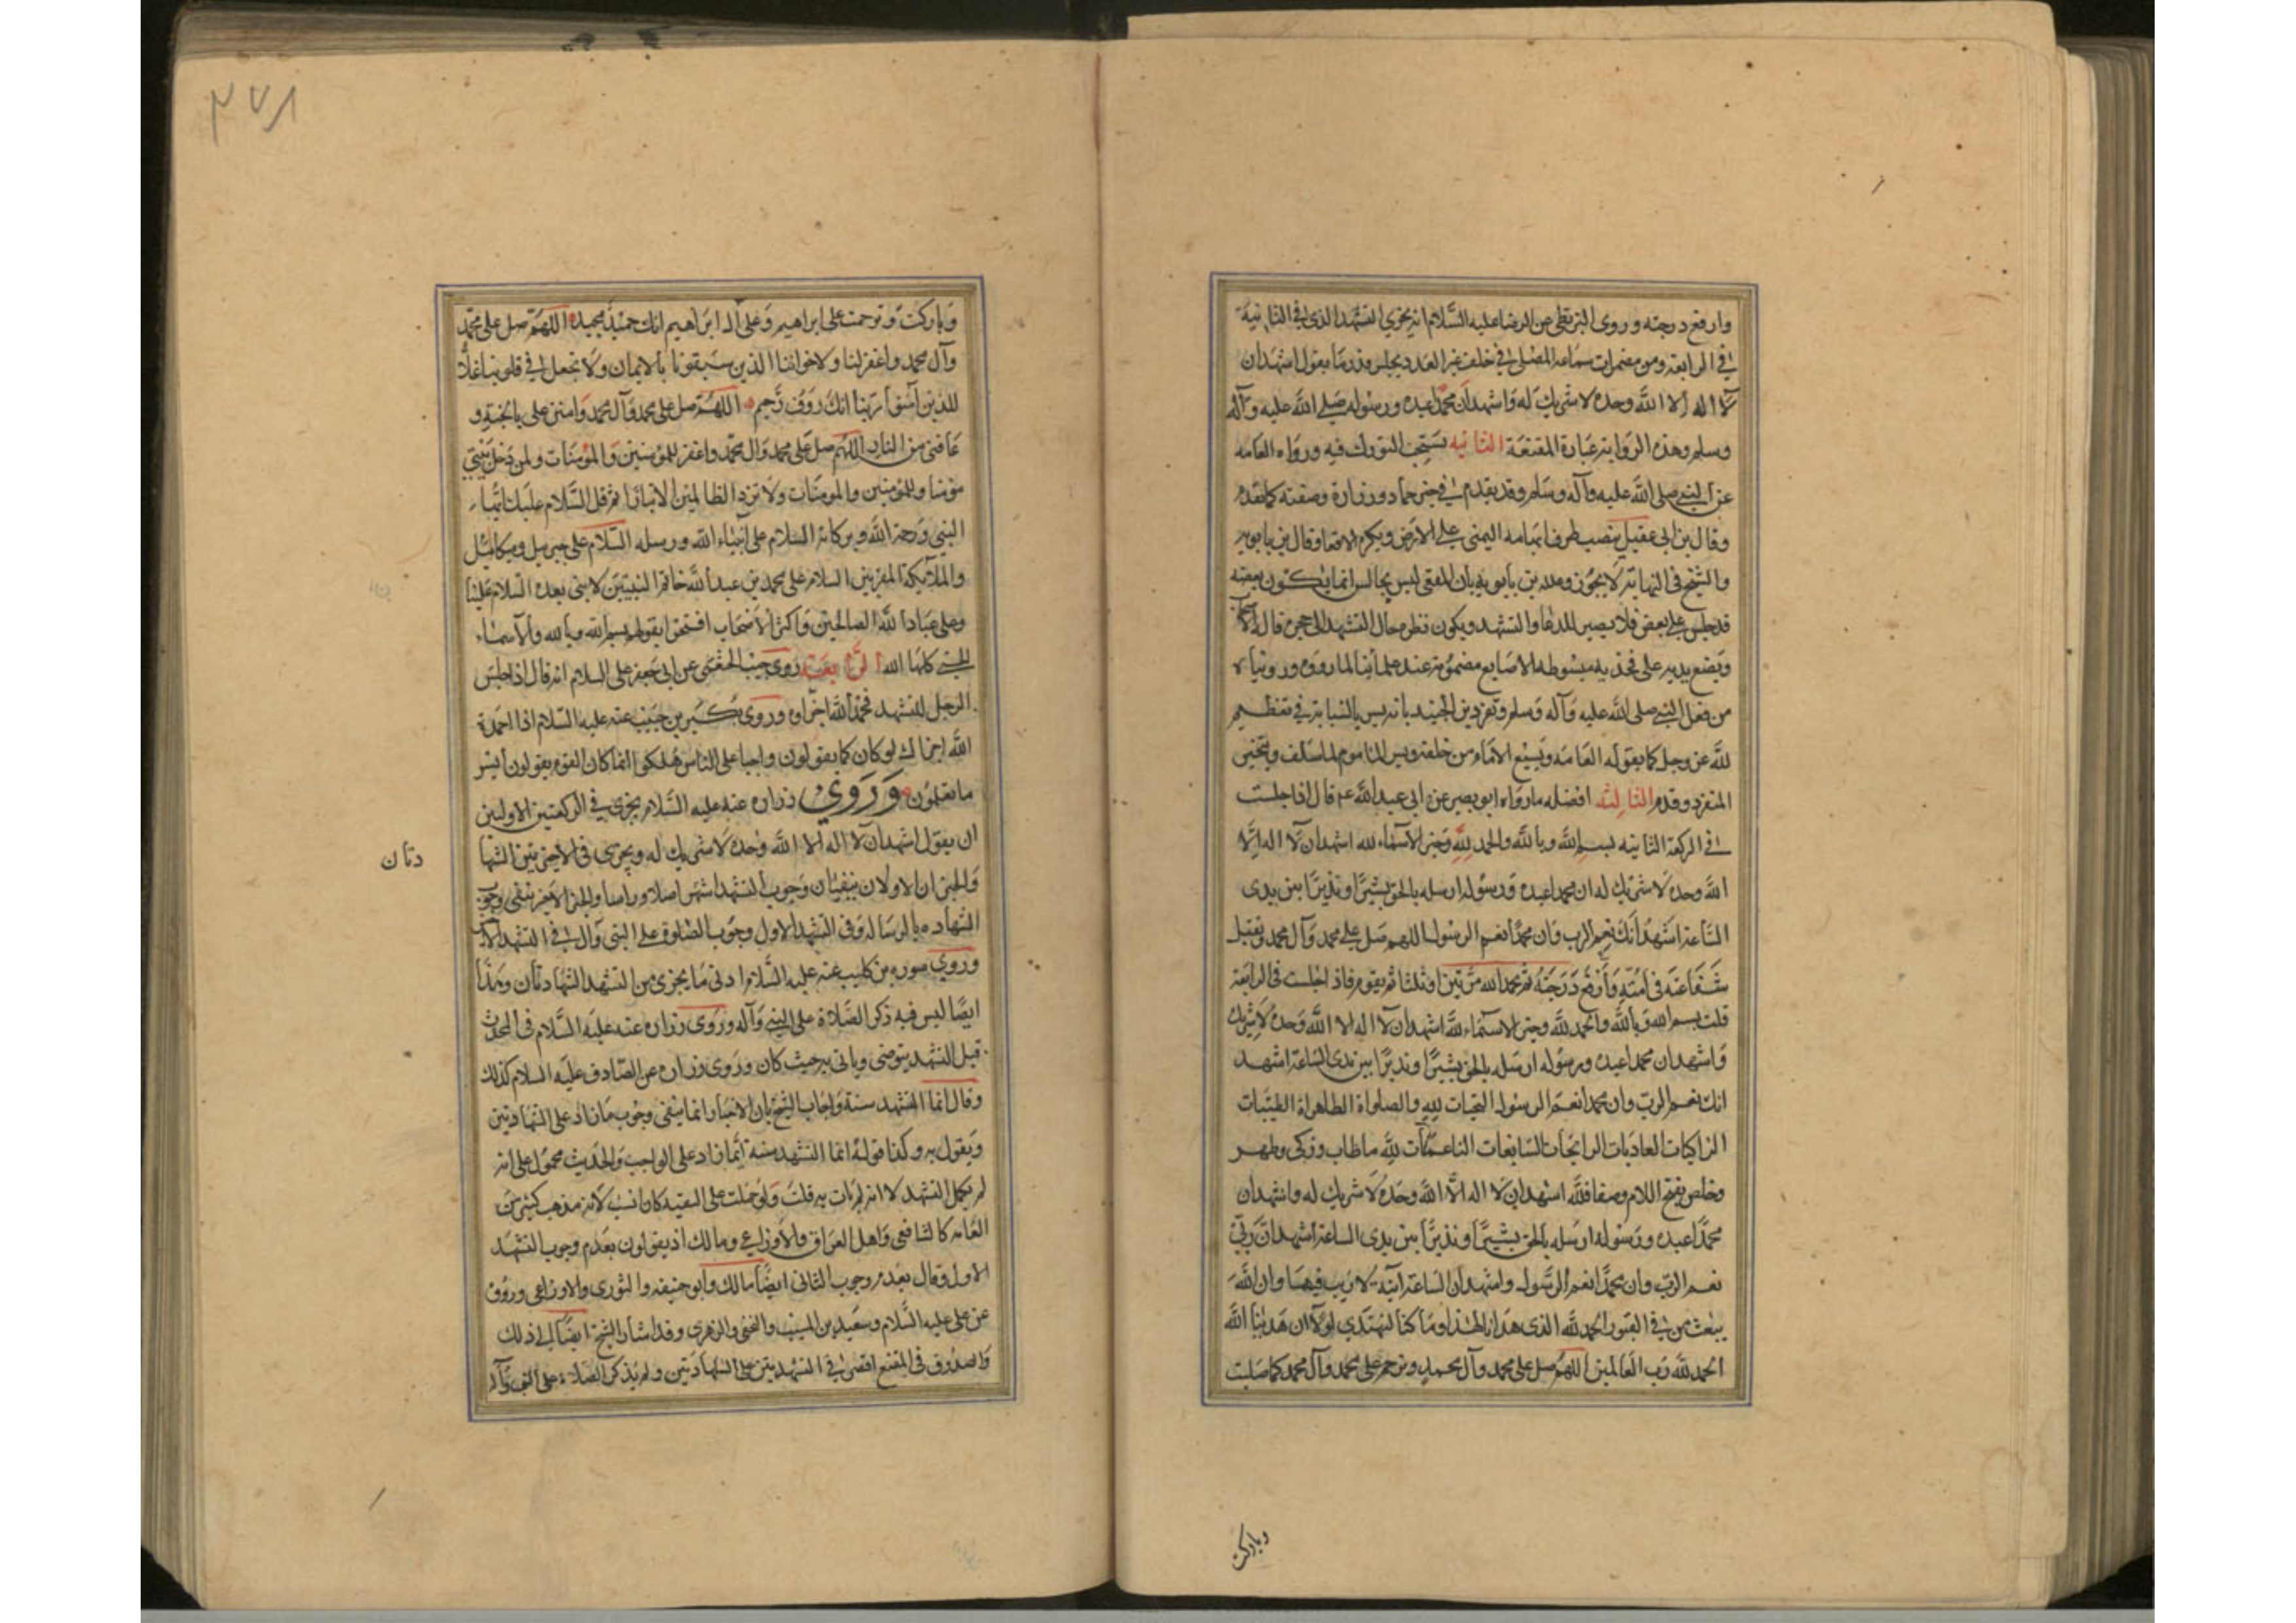 وارفع درجته وروى البزنطي عن الرضا عليه السلام انه يجزي التشهد الذي في الثانية
في الرابعة ومن مضمرات سماعة المصلي خلف غير العدل يجلس قدر ما يقول اشهد ان
لا اله الا الله وحده لا شريك له واشهد ان محمدا عبده ورسوله صلى الله عليه وآله
وسلم وهذه الرواية عبارة المقنعة الثانية يستحب التورك فيه ورواه العامة
عن النبي صلى الله عليه وآله وسلم وقد تقدم في خبر حماد وزرارة وصفته كما تقدم
وقال بن ابي عقيل ينصب طرف ابهامه اليمنى على الارض ويكره الاقعا وقال بن بابويه
والشيخ في النهاية لا يجوز وعلله بن بابويه بان المقعي ليس بجالس انما يكون بعضه
قد جلس على بعض فلا يصير للدعا والتشهد ويكون نظره حال التشهد الى حجره قال
ويضع يديه على فخذيه مبسوطه الاصابع مضمومة عند علمائنا لما رووه وروينا
من فعل النبي صلى الله عليه وآله وسلم وتفرد بن الجنيد بانه يس بالسبابة في تعظيم
لله عز وجل كما يقوله العامة ويسمع الامام من خلفه ويس الماموم لما سلف ويتخير
المنفرد وقدم الثالثة افضله ما رواه ابو بصير عن ابي عبد الله عم قال اذا جلست
في الركعة الثانيه بسم الله وبالله والحمد لله وخير الاسماء لله اشهد ان لا اله الا
الله وحده لا شريك له ان محمدا عبده ورسوله ارسله بالحق بشيرا ونذيرا بين يدى
الساعة اشهد انك نعم الرب وان محمدا نعم الرسول اللهم صل على محمد وآل محمد وتقبل
شفاعته في امته وارفع درجته ثم يحمد الله مرتين او ثلثا ثم يقوم فاذا جلست في الرابعة
قلت بسم الله وبالله والحمد لله وخير الاسماء لله اشهد ان لا اله الا الله وحده لا شريك
واشهد ان محمدا عبده ورسوله ارسله بالحق بشيرا ونذيرا بين يدى الساعة اشهد
انك نعم الرب وان محمدا نعم الرسول التحيات لله والصلواة الطاهراة الطيبات
الزاكيات الغاديات الرائحات السابغات الناعمات لله ما طاب وزكى وطهر
وخلص بفتح اللام وصفا فلله اشهد ان لا اله الا الله وحده لا شريك له واشهد ان
محمدا عبده ورسوله ارسله بالحق بشيرا ونذيرا بين يدى الساعة اشهد ان ربي
نعم الرب وان محمدا نعم الرسول واشهد ان الساعة آتية لا ريب فيها وان الله
يبعث من في القبور الحمد لله الذى هدانا لهذا وما كنا لنهتدي لولا ان هدينا الله
الحمد لله رب العالمين اللهم صل على محمد وآل محمد وترحم على محمد وآل محمد كما صليت
وباركت
٣٧٨
وباركت وترحمت على ابراهيم وعلى آل ابراهيم انك حميد مجيد اللهم صل على محمد
وآل محمد واغفر لنا ولاخواننا الذين سبقونا بالايمان ولا تجعل في قلوبنا غلا
للذين آمنوا ربنا انك رؤف رحيم اللهم صل على محمد وآل محمد وامنن على بالجنة و
عافني من النار اللهم صل على محمد وآل محمد واغفر للمؤمنين والمؤمنات ولمن دخل بيتي
مؤمنا وللمؤمنين والمومنات ولا تزد الظالمين الا تبارا ثم قل السلام عليك ايها
النبي ورحمة الله وبركاته السلام على انبياء الله ورسله السلام على جبرييل وميكائيل
والملائكة المقربين السلام على محمد بن عبد الله خاتم النبيين لا نبى بعده السلام علينا
وعلى عباد الله الصالحين واكثر الاصحاب افتتحوا بقولهم بسم الله وبالله والاسماء
الحسنى كلها لله الرابعة روى حبيب الخثعمى عن ابي جعفر على السلام انه قال اذا جلس
الرجل للتشهد فحمد الله اجزاه وروى بكير بن حبيب عنه عليه السلام اذا احمدة
الله اجزا لو كان كما يقولون واجبا على الناس هلكوا انما كان القوم يقولون ايسر
ما يعلمون وروى زراره عنه عليه السلام يجزى في الركعتين الاولتين
ان يقول اشهد ان لا اله الا الله وحده لا شريك له ويجزى في الاخيرتين الشها
دتان
والخبران الاولان ينفيان وجوب التشهد اشهر اصلا وراسا والخبر الاخير ينفى وجوب
الشهاده بالرسالة وفى التشهد الاول وجوب الصلوة على النبى وآل في التشهد
وروى سوره بن كليب عنه عليه السلام ادنى ما يجزى من التشهد الشهادتان وهذا
ايضا ليس فيه ذكر الصلاة على النبي وآله وروى زراره عنه عليه السلام فى المحدث
قبل التشهد يتوضى وياتى به حيث كان وروى زراره عن الصادق عليه السلام كذلك
وقال انما التشهد سنة واجاب الشيخ بان الاخبار انما ينفى وجوب ما زاد على الشهادتين
ويقول به وكذا قوله انما التشهد سنة ايما زاد على الواجب والحديث محمول على انه
لم يكمل التشهد لا انه لم يات به قلت ولو حملت على التقيه كان انسب لانه مذهب كثير من
العامه كالشافعى واهل العراق والاوزاعي ومالك اذ يقولون بعدم وجوب التشهد
الاول وقال بعدم وجوب الثانى ايضا مالك وابو حنيفه والثورى والاوزاعى ورووه
عن على عليه السلام وسعيد بن المسيب والنخعى والزهرى وقد اشار الشيخ ايضا الى ذلك
والصدوق فى المقنع اقتصر في التشهدين على الشهادتين ولم يذكر الصلاة على النبى وآله